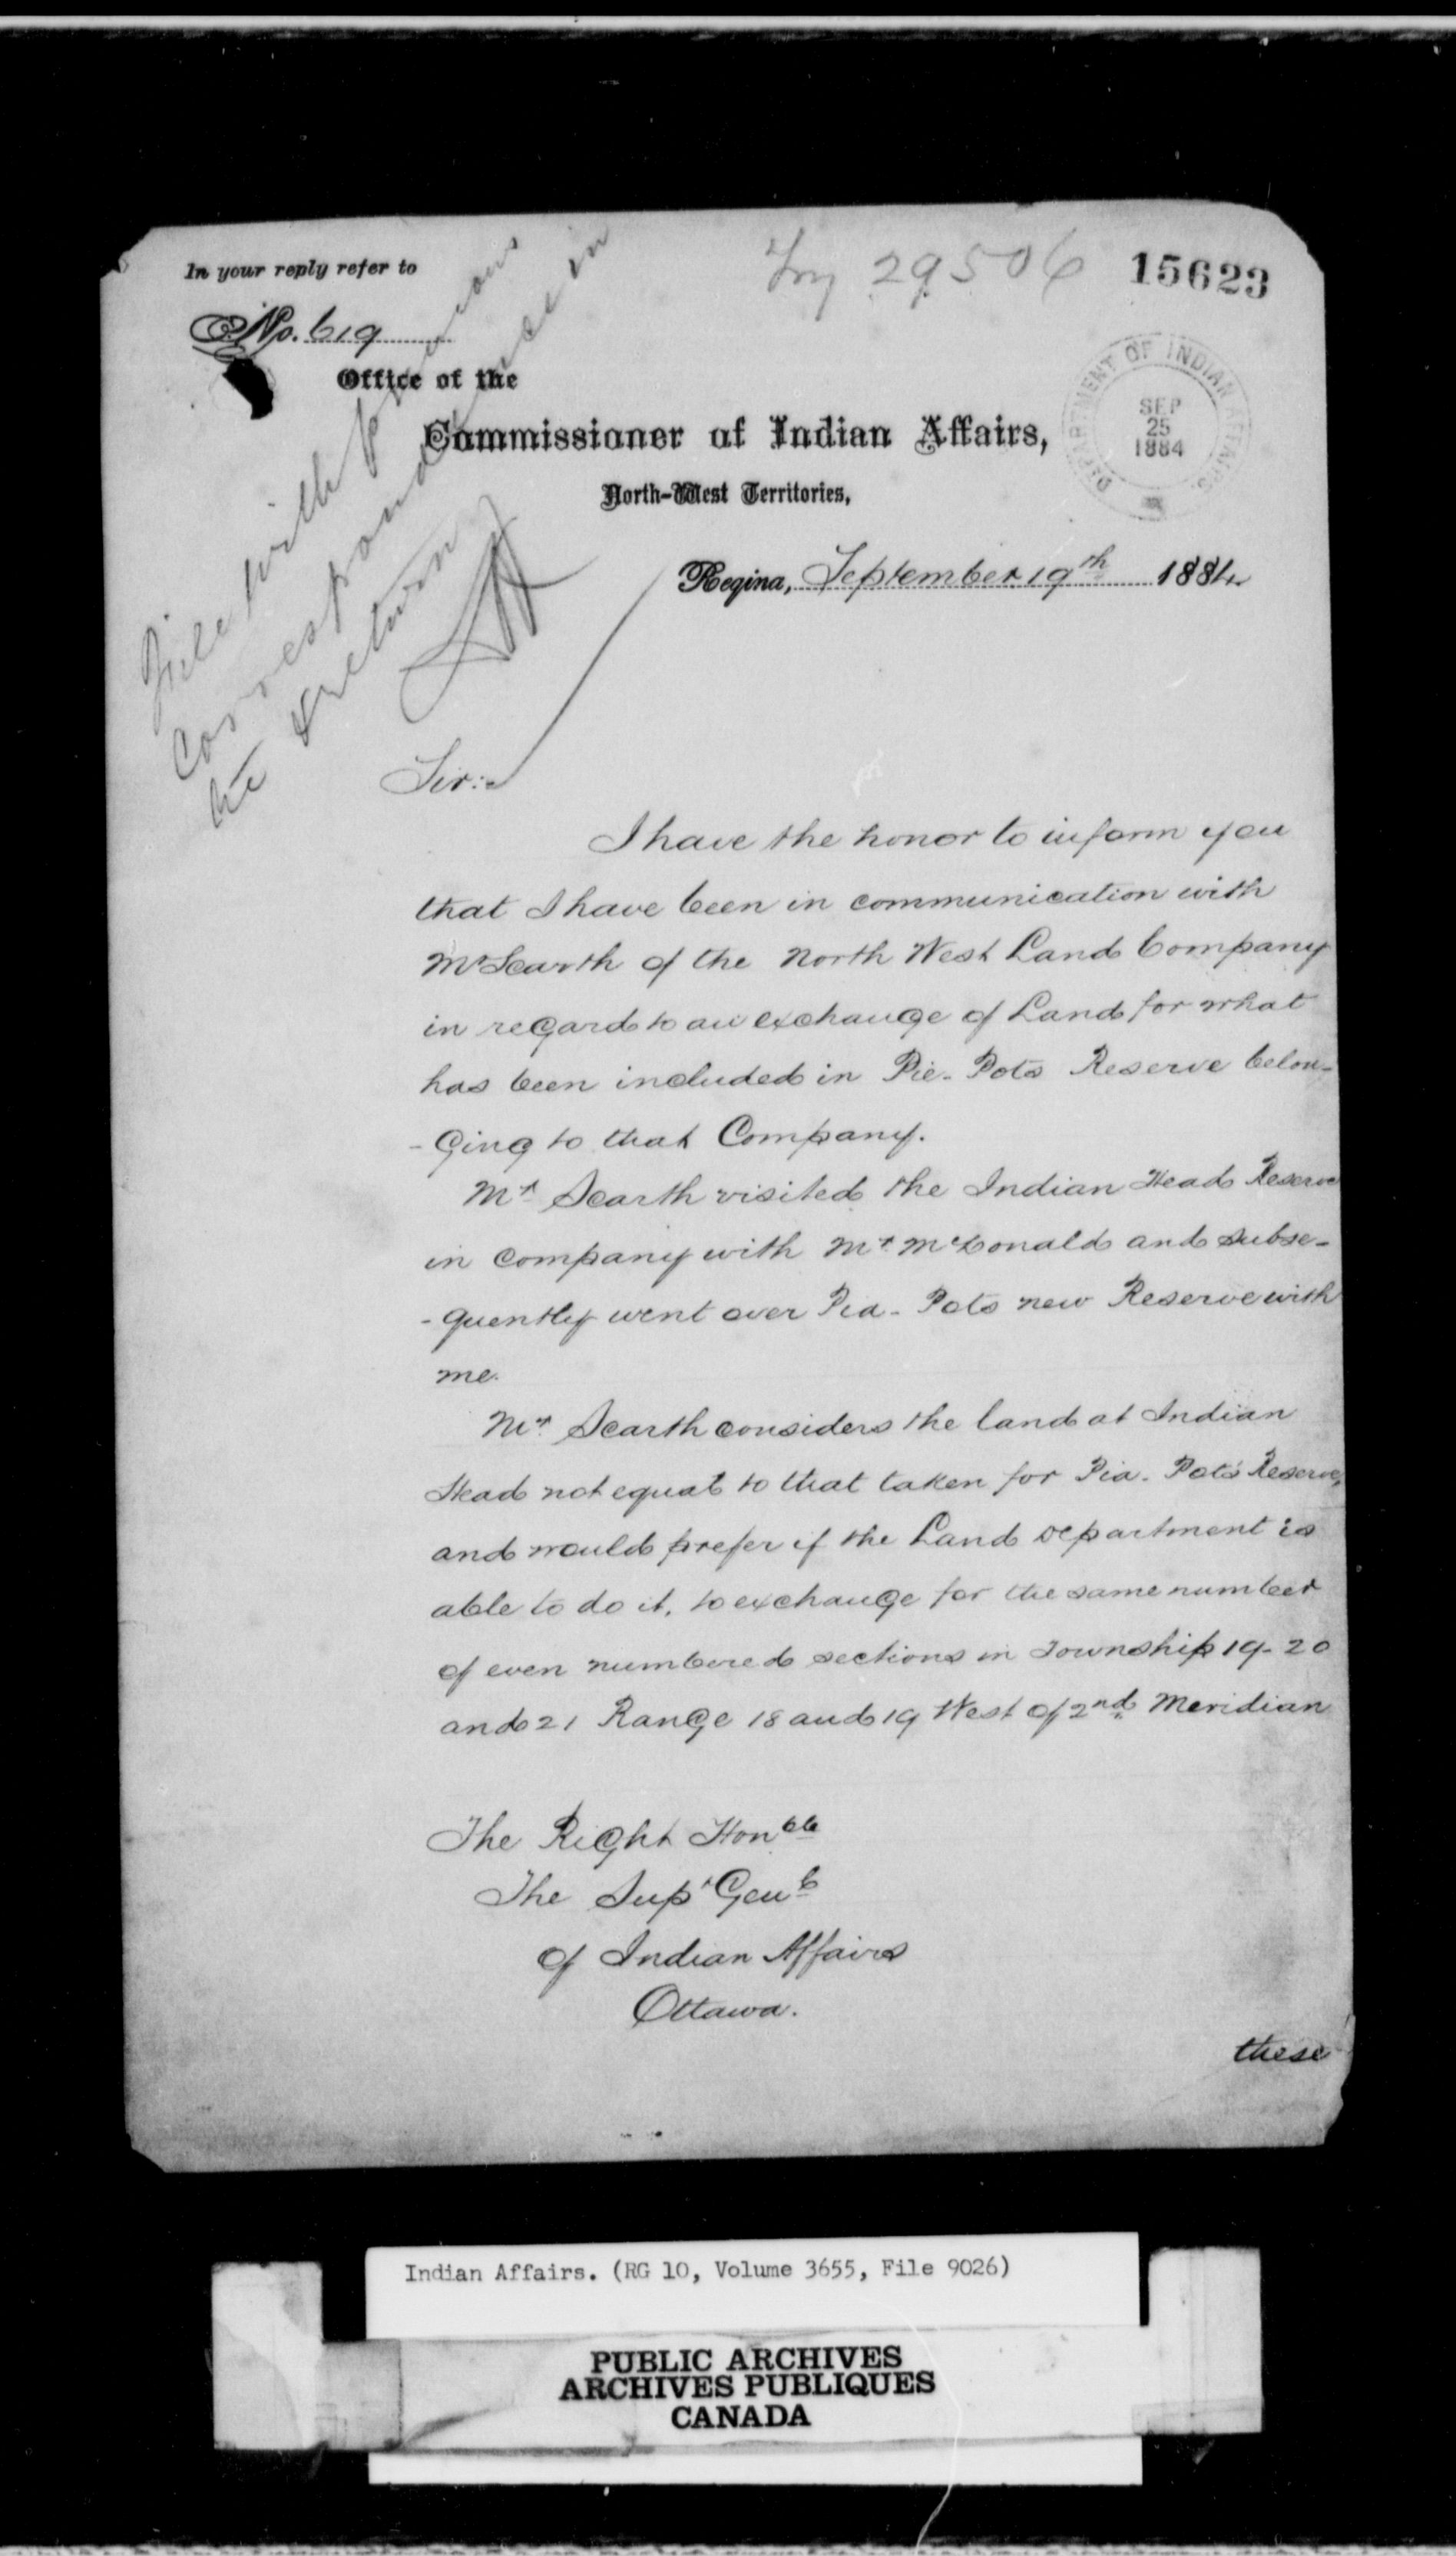 In your reply refer to
29506
15623
No. 619
Office of the
Commissioner of Indian Affairs,
North-West Territories,
DEPARTMENT OF INDIAN AFFAIRS
SEP
25
1884
Regina, September 19th 1884
File with previous
correspondence in
re &
Sir:-
I have the honor to inform you
that I have been in communication with
Mr Scarth of the North West Land Company
in regard to an exchange of Land for what
has been included in Pie-Pots Reserve belon-
-ging to that Company.
Mr Scarth visited the Indian Head Reserve
in company with Mr McDonald and subse-
-quently went over Pia-Pots new Reserve with
me.
Mr. Scarth considers the land at Indian
Head not equal to that taken for Pia-Pots Reserve,
and would prefer if the Land Department is
able to do it, to exchange for the same number
of even numbered sections in Township 19-20
and 21 Range 18 and 19 West of 2nd Meridian
The Right Honble
The Supt Genl
of Indian Affairs
Ottawa.
these
Indian Affairs. (RG 10, Volume 3655, File 9026)
PUBLIC ARCHIVES
ARCHIVES PUBLIQUES
CANADA